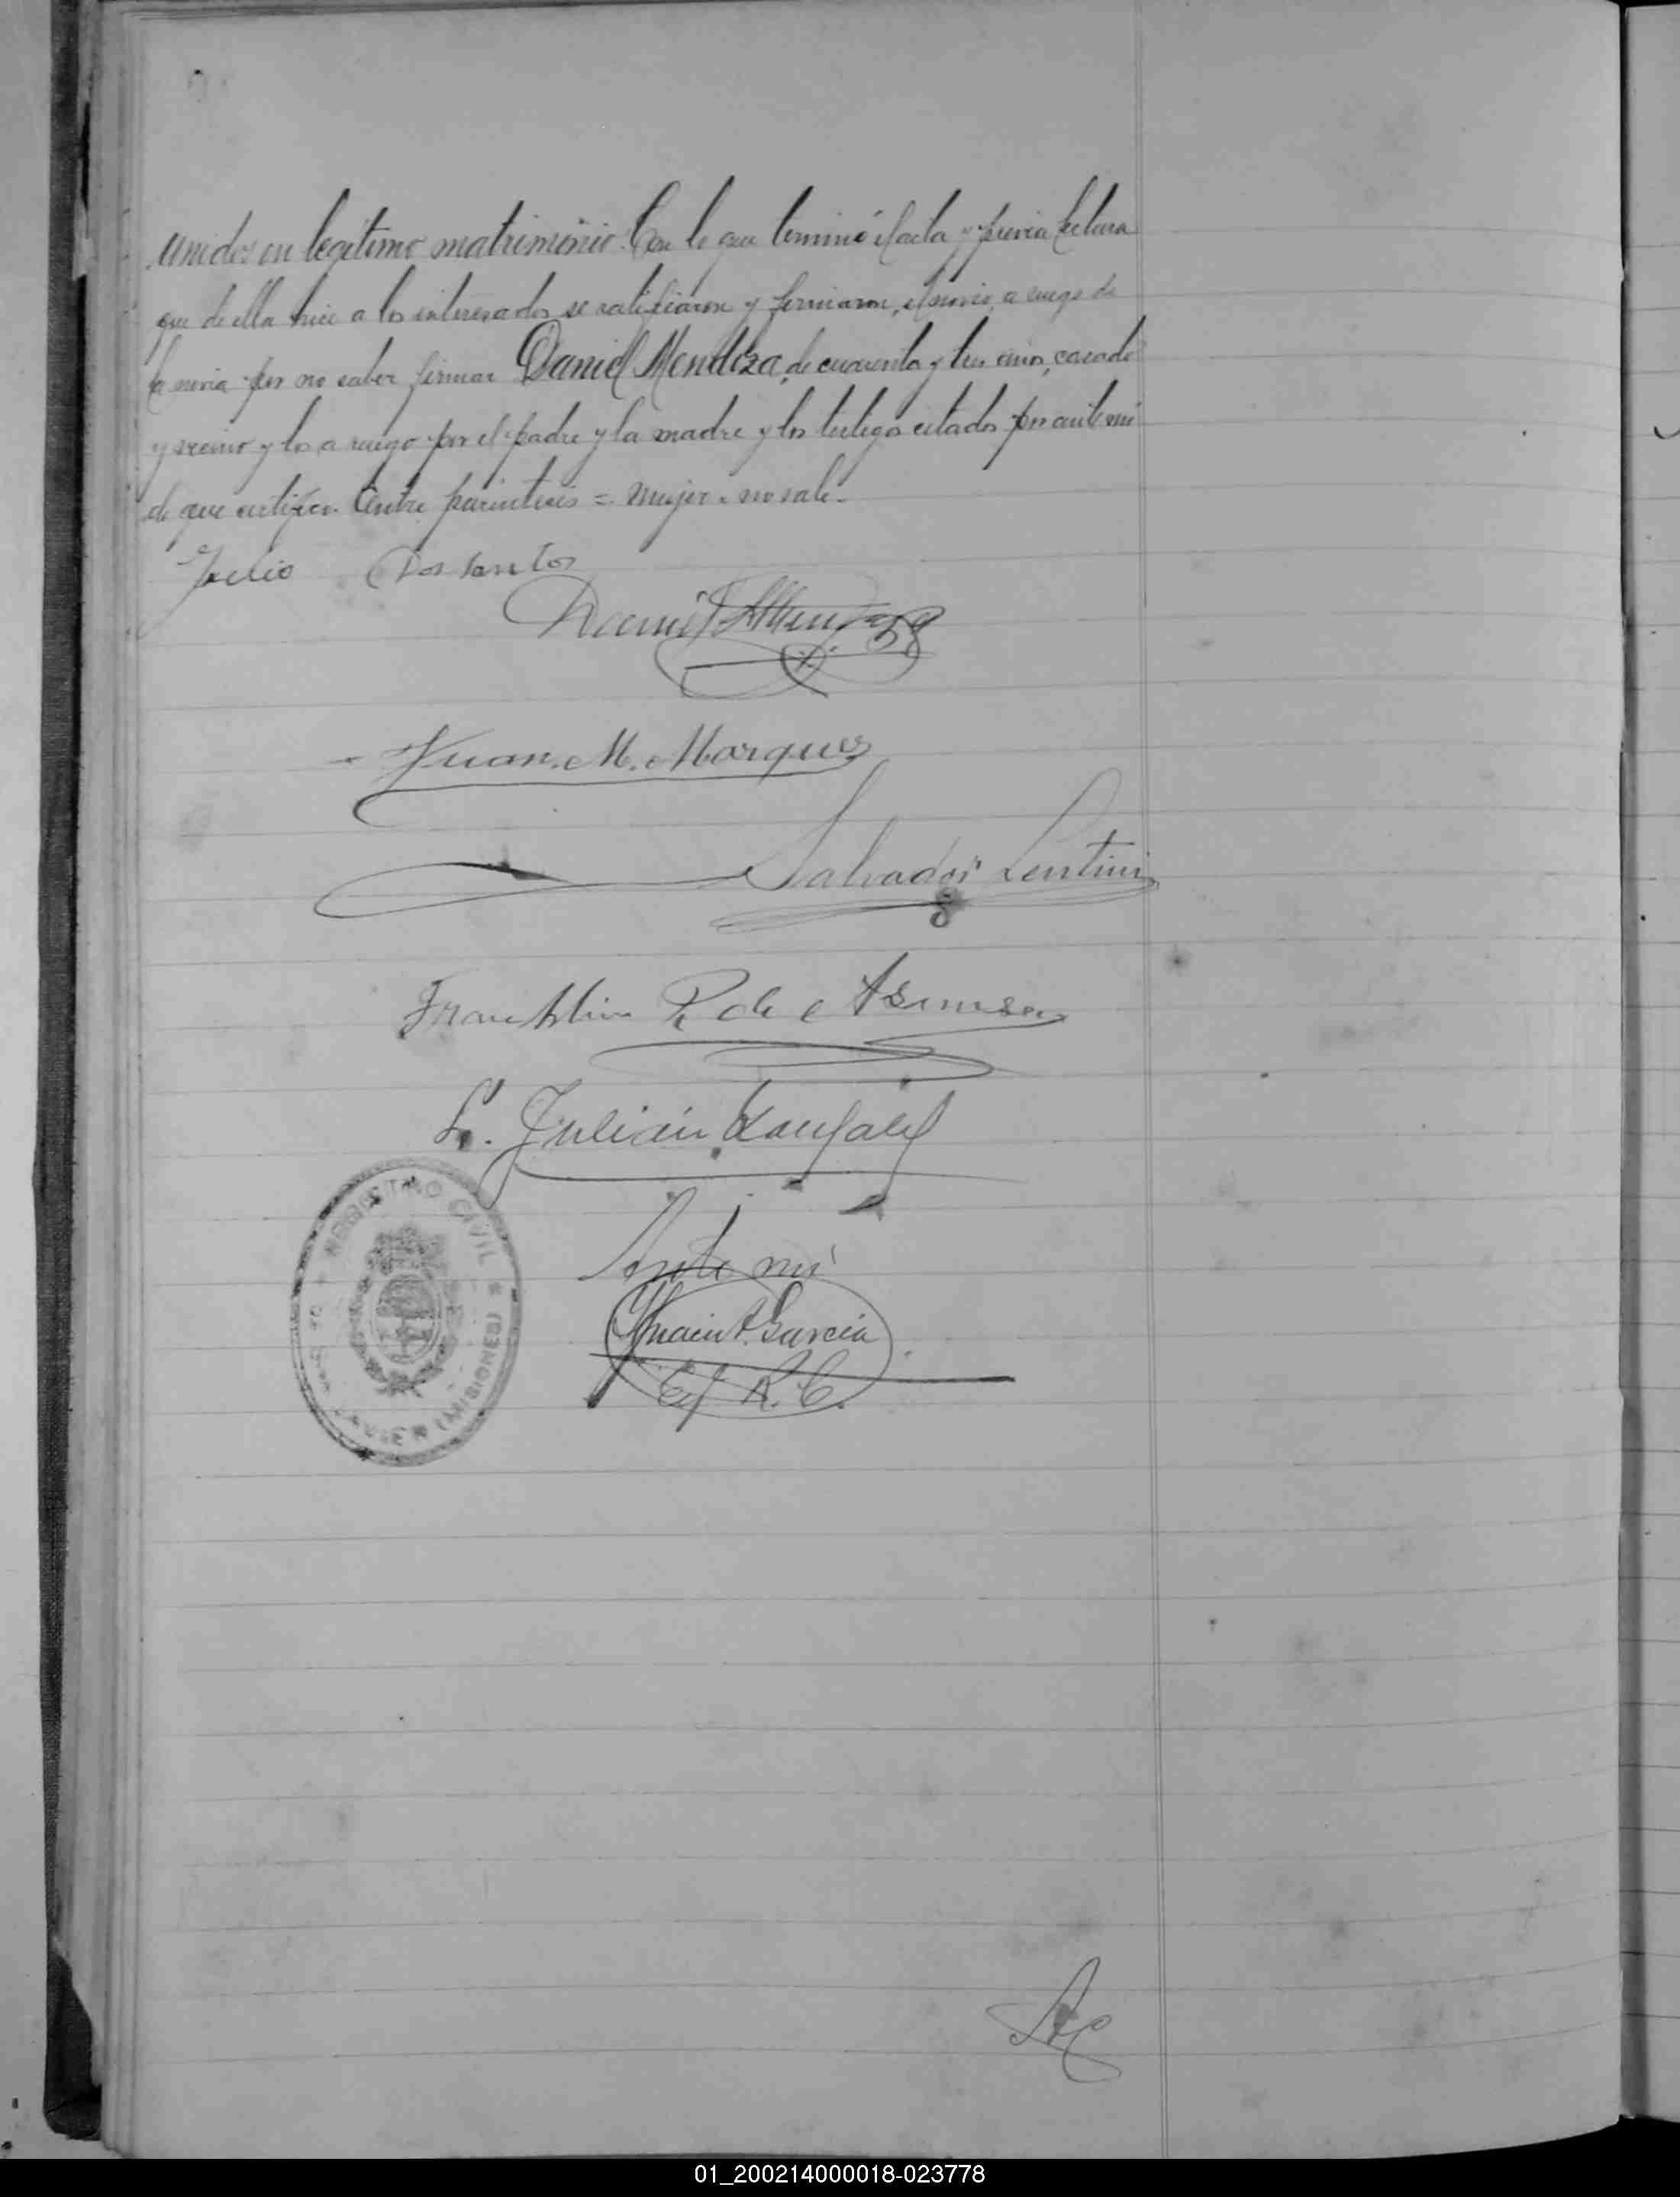 unidos en legítimo matrimonio. Con lo que terminó el acta y previa lectura
que de ella hice a los interesados se ratificaron y firmaron, el novio, a ruego de
la novia por no saber firmar Daniel Mendoza, de cuarenta y tres años, casado
y vecino y los a ruego por el padre y la madre y los testigos citados por ante mi
de que certifico. Entre parentesis = mujer = no vale.-
Julio Dos Santos
Daniel Mendoza
Juan. M. Marques
Salvador Lentini
Franklin R. de
L. Julian Gonzalez
Ante mi
Garcia
Ef R. C.
REGISTRO CIVIL
SAN JAVIER (MISIONES)
01_200214000018-023778